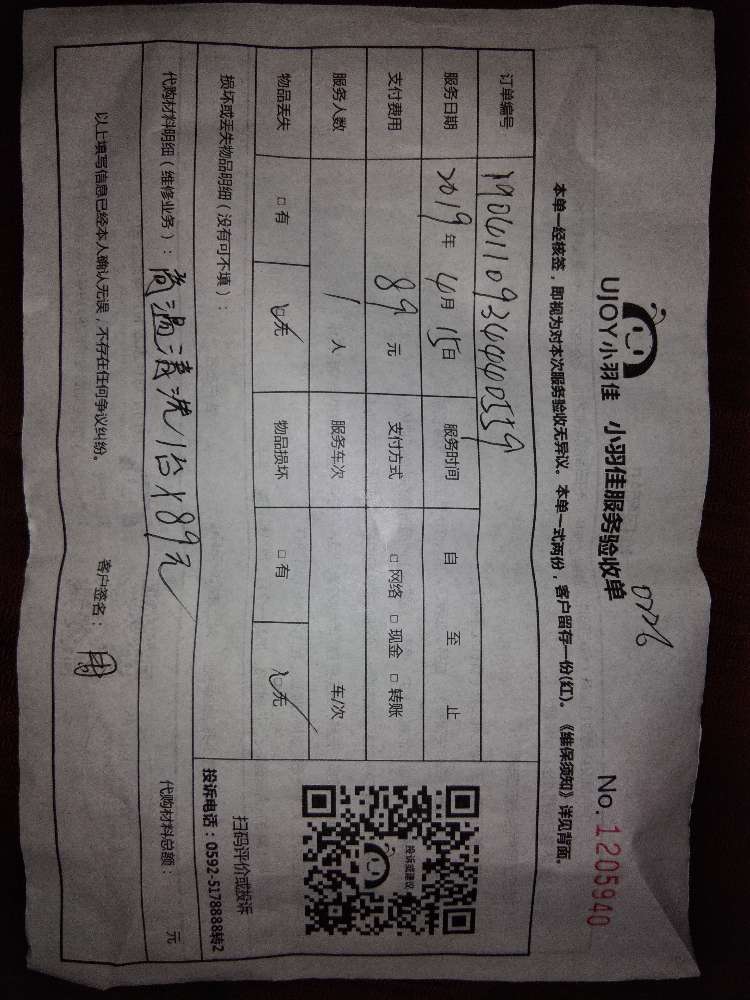 UJOY小羽佳 小羽佳服务验收单 No. 1205940
本单一经核签，即视为对本次服务验收无异议。本单一式两份，客户留存一份(红)。《维保须知》详见背面。
订单编号
服务日期 2019年 6月 15日 服务时间 自 至 止
支付费用 89 元 支付方式 □ 网络 □ 现金 □ 转账
服务人数 1 人 服务车次 车/次
物品丢失 □ 有 □ 无 物品损坏 □ 有 □ 无
投诉或建议
扫码评价或投诉
投诉电话：0592-5178888转2
损坏或丢失物品明细（没有可不填）：
代购材料明细（维修业务）：高温清洗1台×89元 代购材料总额： 元
以上填写信息已经本人确认无误，不存在任何争议纠纷。 客户签名：周